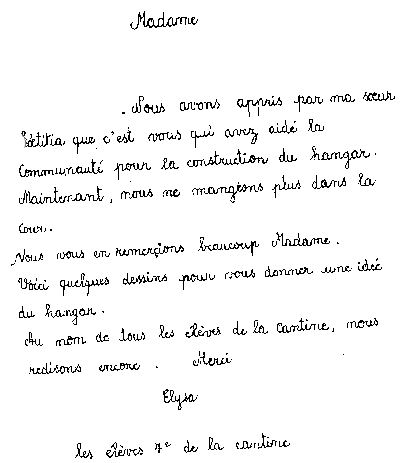 Madame
. Nous avons appris par ma sœur
Laetitia que c'est vous qui avez aidé la
Communauté pour la construction du hangar.
Maintenant, nous ne mangeons plus dans la
cour.
Nous vous en remerçions beaucoup Madame.
Voici quelques dessins pour vous donner une idée
du hangar.
Au nom de tous les élèves de la cantine, nous
redisons encore. Merci
Elysa
les élèves 7e de la cantine